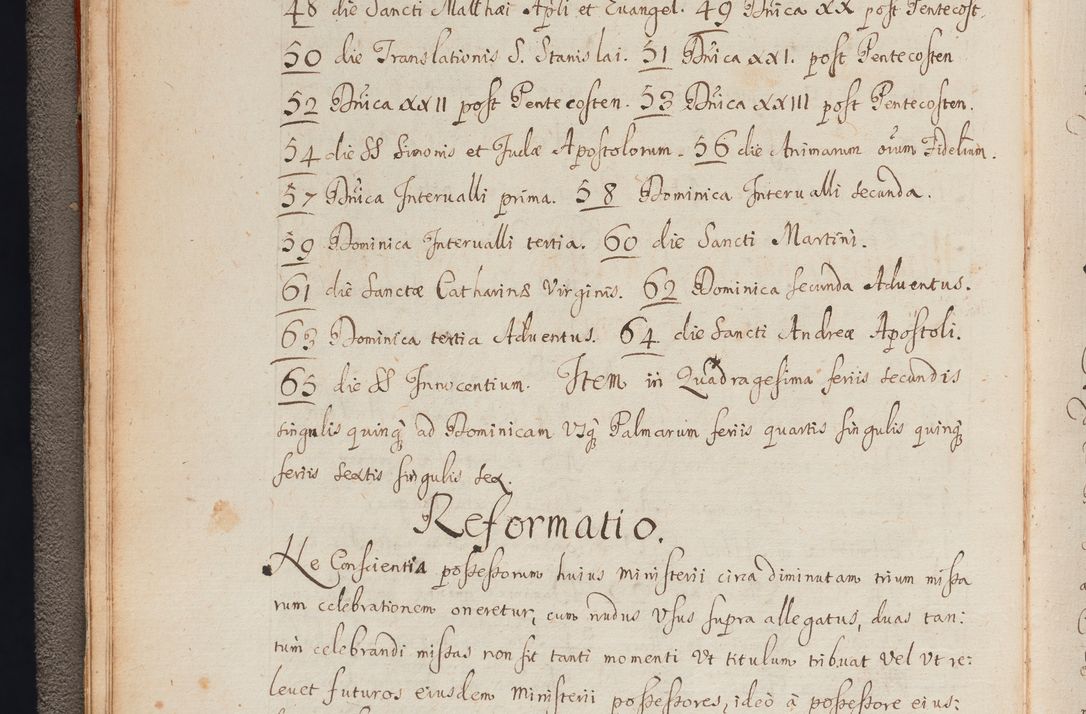 48 die Sancti Matthæi Apli et Euangel. 49 Dnica XX post Pentecost.
50 die Translationis S. Stanislai. 51 Dnica XXI. post Pentecosten
52 Dnica XXII post Pentecosten. 53 Dnica XXIII post Pentecosten.
54 die SS Simonis et Judæ Apostolorum. 56 die Animarum oium Fidelium.
57 Dnica Interualli prima. 58 Dominica Interualli secunda.
59 Dominica Interualli tertia. 60 die Sancti Martini.
61 die Sanctæ Catharinæ Virginis. 62 Dominica secunda Aduentus.
63 Dominica tertia Aduentus. 64 die Sancti Andreæ Apostoli.
65 die SS Innocentium. Item in Quadragesima feriis secundis
singulis quinq; ad Dominicam Usq; Palmarum feriis quartis singulis quinq;
feriis sextis singulis sex.
Reformatio.
Ne Conscientia possessorum huius Ministerii circa diminutam trium missa
rum celebrationem oneretur, cum nudus Usus supra allegatus, duas tan:
tum celebrandi missas non sit tanti momenti Ut titulum tribuat Vel Ut re:
leuet futuros eiusdem Ministerii possessores, ideò à possessore eius: